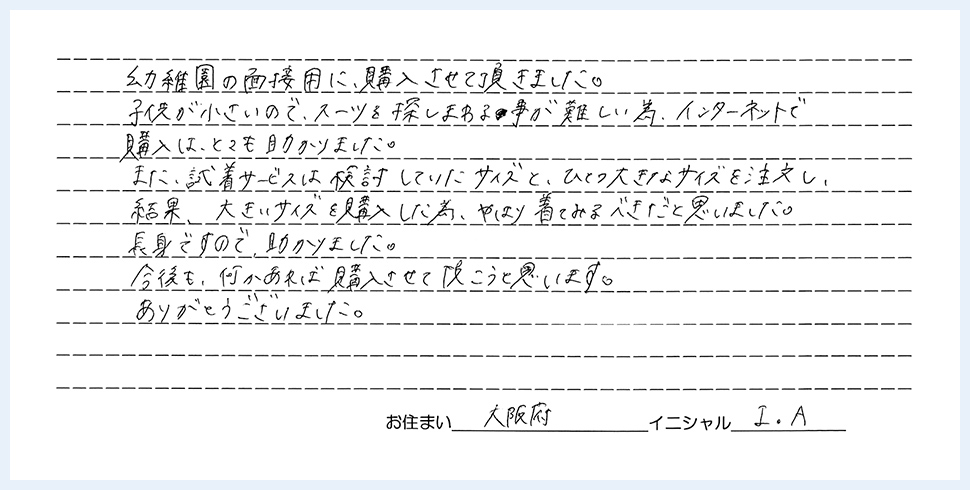 幼稚園の面接用に、購入させて頂きました。
子供が小さいので、スーツを探しまわる事が難しい為、インターネットで
購入は、とても助かりました。
また、試着サービスは検討していたサイズと、ひとつ大きなサイズを注文し、
結果、大きいサイズを購入した為、やはり着てみるべきだと思いました。
長身ですので、助かりました。
今後も、何かあれば購入させて頂こうと思います。
ありがとうございました。
お住まい 大阪府 イニシャル I.A